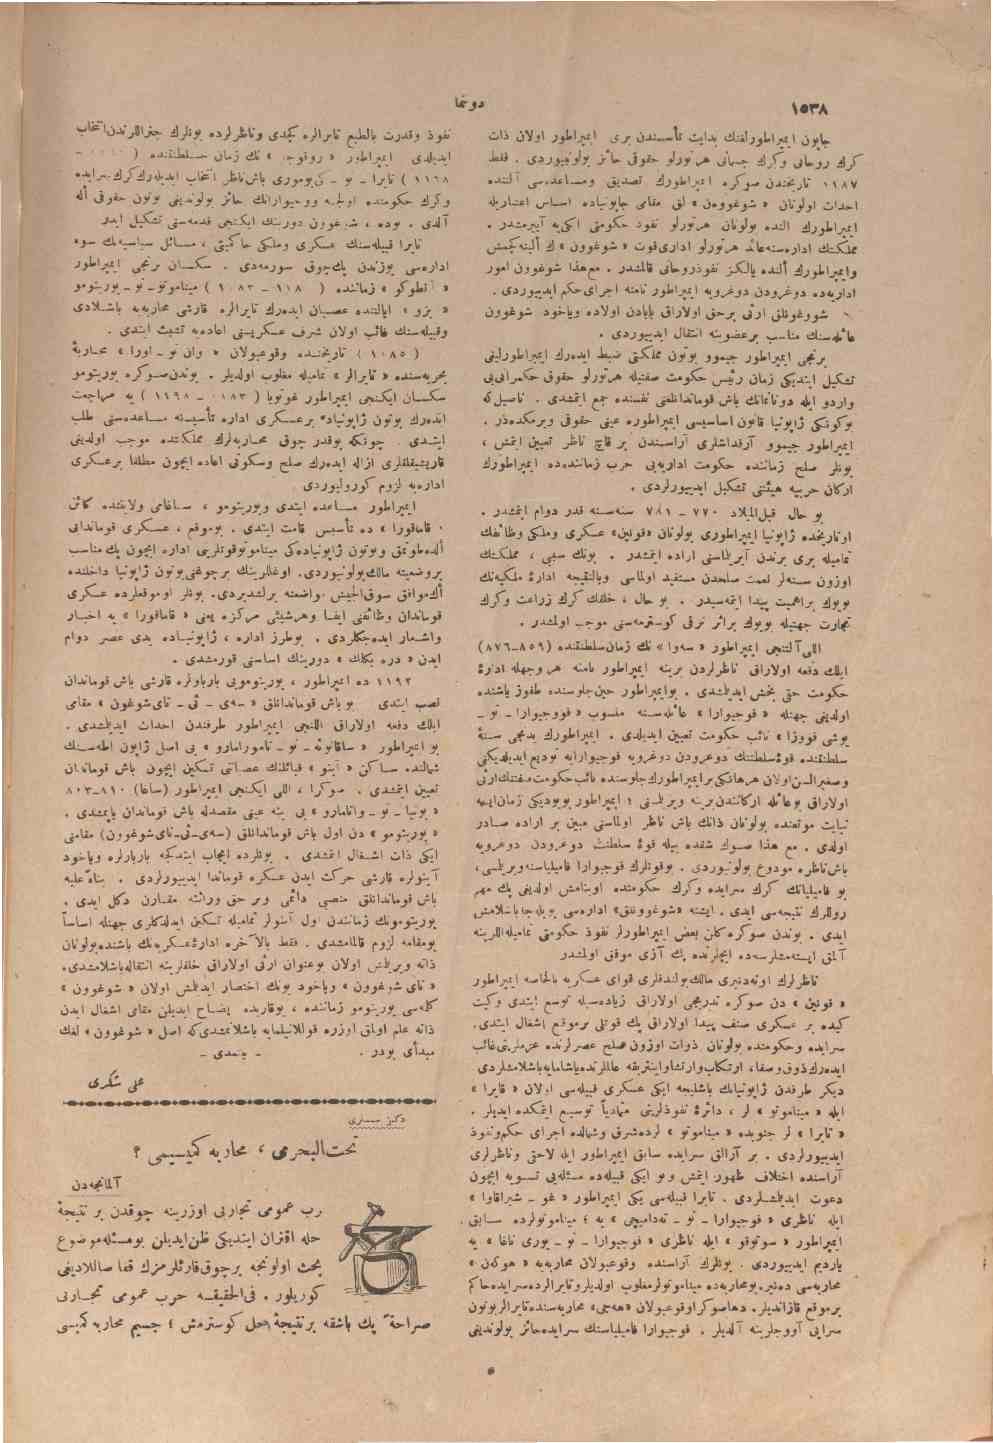 ١٥٣٨
دونما
ژاپون ایمپراطورلغنك بدایت تأسسندن بری ایمپراطور اولان ذات
كرك روحانی وكرك جسمانی هر تورلو حقوقی حائز بولونیوردی . فقط
١١٨٧ تاریخندن صوكره ایمپراطورك تصدیق ومساعده‌سی آلتنده
احداث اولونان « شوغوون » لق مقامی ژاپونیاده اساس اعتباریله
ایمپراطورك النده بولونان هر تورلو نفوذ حكومتی ایكی‌یه آییرمشدر .
مملكتك اداره‌سنه عائد هر تورلو اداری قوت « شوغوون » ك ألینه كچمش
وایمپراطورك ألنده یالكز نفوذ روحانی قالمشدر . مع‌هذا شوغوون امور
اداریه‌ده دوغرودن دوغرویه ایمپراطور نامنه اجرای حكم ایدییوردی .
شووغونلق ارثی برحق اولاراق بابادن اولاده ویاخود شوغوون
عائله‌سنك مناسب بر عضوینه انتقال ایدییوردی .
برنجی ایمپراطور جیموو بوتون مملكتی ضبط ایده‌رك ایمپراطورلغی
تشكیل ایتدیكی زمان رئیس حكومت صفتیله هر تورلو حقوق حكمرانی‌یی
واردو ایله دونانمانك باش قوماندانلغنی نفسنده جمع ایتمشدی . ناصیل كه
بوكونكی ژاپونیا قانون اساسیسی ایمپراطوره عینی حقوقی ویرمكده‌در .
ایمپراطور جیموو آرقداشلری آراسندن بر قاچ ناظر تعیین ایتمش ،
بونلر صلح زماننده حكومت اداریه‌یی حرب زماننده‌ده ایمپراطورك
اركان حربیه هیئتنی تشكیل ایدییورلردی .
بو حال قبل‌المیلاد ٧٧٠ – ٧٨١ سنه‌سنه قدر دوام ایتمشدر .
او تاریخده ژاپونیا ایمپراطوری بولونان «قونین» عسكری وملكی وظائفك
تمامیله بری برندن آیریلماسنی اراده ایتمشدر . بونك سببی ، مملكتك
اوزون سنه‌لر نعمت صلحدن مستفید اولماسی وبالنتیجه ادارهٔ ملكیه‌نك
بویوك بر اهمیت پیدا ایتمه‌سیدر . بو حال ، خلقك كرك زراعت وكرك
تجارت جهتیله بویوك براثر ترقی كوسترمه‌سنی موجب اولمشدر .
اللی آلتنجی ایمپراطور « سه‌وا » نك زمان سلطنتنده (٨٥٩–٨٧٦)
ایلك دفعه اولاراق ناظرلردن برینه ایمپراطور نامنه هر وجهله ادارهٔ
حكومت حقی بخش ایدیلمشدی . بو ایمپراطور حین جلوسنده طقوز یاشنده
اولدیغی جهتله « فوجیوارا » عائله‌سنه منسوب « فوجیوارا – نو –
یوشی فووزا » نائب حكومت تعیین ایدیلدی . ایمپراطورك یدنجی سنهٔ
سلطنتنده قوهٔ سلطنتك دوغرودن دوغرویه فوجیوارایه تودیع ایدیلدیكی
اولاراق بو عائله اركانندن برینه ویریلمسی ؛ ایمپراطور بویودیكی زمان ایسه
نیابت موقعنده بولونان ذاتك باش ناظر اولماسنی مبین بر اراده صادر
اولدی . مع هذا صوك شقده بیله قوهٔ سلطنت دوغرودن دوغرویه
باش ناظره مودوع بولونیوردی . بوقوتلرك فوجیوارا فامیلیاسنه ویریلمسی ،
بو فامیلیانك كرك سرایده وكرك حكومتده اوینامش اولدیغی پك مهم
روللرك نتیجه‌سی ایدی . ایشته «شوغوونلق» اداره‌سی بویله‌جه باشلامش
ایدی . بوندن صوكره كلن بعض ایمپراطورلر نفوذ حكومتی تمامیله اللرینه
آلمق ایسته‌مشلرسه‌ده ایچلرنده پك آزی موفق اولمشدر
ناظرلرك اوته‌دنبری مالك بولندقلری قوای عسكریه بالخاصه ایمپراطور
« قونین » دن صوكره تدریجی اولاراق زیاده‌سیله توسع ایتدی وكیت
كیده بر عسكری صنف پیدا اولاراق پك قوتلی برموقع اشغال ایتدی .
سرایده وحكومتده بولونان ذوات اوزون صلح عصرلرنده عزملرینی غائب
ایده‌رك ذوق وصفا ، ارتكاب وارتشا واینتریقه عالملرنده یاشامایه باشلامشلردی
دیكر طرفدن ژاپونیانك باشلیجه ایكی عسكری قبیله‌سی اولان « تایرا »
ایله « میناموتو » لر ، دائرهٔ نفوذلرینی متمادیاً توسیع ایتمكده ایدیلر .
« تایرا » لر جنوبده « میناموتو » لرده شرق وشمالده اجرای حكم ونفوذ
ایدییورلردی . بر آرالق سرایده سابق ایمپراطور ایله لاحق وناظرلری
آراسنده اختلاف ظهور ایتمش وبو ایكی قبیله‌ده مسئله‌یی تسویه ایچون
دعوت ایدیلمشلردی . تایرا قبیله‌سی یكی ایمپراطور « غو – شیراقاوا »
ایله ناظری « فوجیوارا – نو – ته‌دامیچی » یه ؛ میناموتولرده سابق
ایمپراطور « سوتوقو » ایله ناظری « فوجیوارا – نو – یوری ناغا » یه
یاردیم ایدییوردی . بونلرك آراسنده وقوعبولان محاربه‌یه « هوكه‌ن »
محاربه‌سی ده‌نیر . بومحاربه‌ده میناموتولر مغلوب اولدیلر وتایرالر ده سرایده حاكم
برموقع قازاندیلر . دها صوكرا وقوعبولان «هه‌جی» محاربه‌سنده تایرالر بوتون
سرایی آووجلرینه آلدیلر . فوجیوارا فامیلیاسنك سرایده حائز بولوندیغی
نفوذ وقدرت بالطبع تایرالره كچدی وناظرلرده بونلرك جنراللرندن انتخاب
ایدیلدی ایمپراطور « روقوجو » نك زمان سلطنتنده (
١١٦٨ ) تایرا – نو – كی‌یوموری باش ناظر انتخاب ایدیله‌رك كرك سرایده
وكرك حكومتده اولجه فوجیوارانك حائز بولوندیغی بوتون حقوقی أله
آلدی . بوده ، شوغوون دورینك ایكنجی قدمه‌سنی تشكیل ایدر
تایرا قبیله‌سنك عسكری وملكی حاكمیتی ، مسائل سیاسیه‌یك سوء
اداره‌سی یوزندن پك چوق سورمه‌دی . سكسان برنجی ایمپراطور
« آنطوكو » زماننده ( ١١٨٠ – ١١٨٣ ) میناموتو – نو – یوریتومو
« یزو » ایالتنده عصیان ایده‌رك تایرالره قارشی محاربه‌یه باشلادی
وقبیله‌سنك غائب اولان شرف عسكریسنی اعاده‌یه تشبث ایتدی .
( ١١٨٥ ) تاریخنده وقوعبولان « دان نو – اورا » محاربهٔ
بحریه‌سنده « تایرالر » تمامیله مغلوب اولدیلر . بوندن صوكره یوریتومو
سكسان ایكنجی ایمپراطور غوتوبا ( ١١٨٣ – ١١٩٨ ) یه مراجعت
ایده‌رك بوتون ژاپونیاده برعسكری اداره تأسیسنه مساعده‌سنی طلب
ایتدی . چونكه بوقدر چوق محاربه‌لرك مملكتده موجب اولدیغی
قاریشیقلقلری ازاله ایده‌رك صلح وسكونی اعاده ایچون مطلقا برعسكری
اداره‌یه لزوم كورولیوردی
ایمپراطور مساعده ایتدی ویوریتومو ، ساغامی ولایتنده كائن
« قاماقورا » ده تأسیس اقامت ایتدی . بوموقع ، عسكری قوماندانی
ألده طوتمق وبوتون ژاپونیاده‌كی میناموتو قوتلرینی اداره ایچون پك مناسب
بروضعیته مالك بولونیوردی . اوغللرینك برچوغنی بوتون ژاپونیا داخلنده
أك موافق سوق‌الجیش مواضعنه یرلشدیردی . بونلر اوموقعلرده عسكری
قوماندان وظائفنی ایفا وهرشیئی مركزه یعنی « قاماقورا » یه اخبار
واشعار ایده‌جكلردی . بوطرز اداره ، ژاپونیاده یدی عصر دوام
ایدن « دره بكلك » دورینك اساسنی قورمشدی .
١١٩٢ ده ایمپراطور ، یوریتومویی باربارلره قارشی باش قوماندان
نصب ایتدی بو باش قوماندانلق « سه‌ی – ئی – تای شوغوون » مقامی
ایلك دفعه اولاراق اللنجی ایمپراطور طرفندن احداث ایدیلمشدی .
بو ایمپراطور « ساقانوئه – نو – تامورامارو » یی اصل ژاپون اطه‌سنك
شمالنده ساكن « آینو » قبائلنك عصیاننی تسكین ایچون باش قوماندان
تعیین ایتمشدی . صوكرا ، اللی ایكنجی ایمپراطور (ساغا) ٨١٠–٨٢٣
« بونیا – نو – واتامارو » یی ینه عینی مقصدله باش قوماندان یاپمشدی .
« یوریتومو » دن اول باش قوماندانلق (سه‌ی–ئی–تای شوغوون) مقامنی
ایكی ذات اشغال ایتمشدی . بونلرده ایجاب ایتدكجه باربارلره ویاخود
آینولره قارشی حركت ایدن عسكره قوماندا ایدییورلردی . بناءً علیه
باش قوماندانلق منصبی دائمی وبر حق وراثته مقارن دكل ایدی .
یوریتومونك زمانندن اول آینولر تمامیله تسكین ایدلدكلری جهتله اساساً
بومقامه لزوم قالمامشدی . فقط بالآخره ادارهٔ عسكریه‌نك باشنده بولونان
ذاته ویریلمش اولان بوعنوان ارثی اولاراق خلفلرینه انتقاله باشلامشدی .
« تای شوغوون » ویاخود بونك اختصار ایدیلمش اولان « شوغوون »
كله‌سی یوریتومو زماننده ، یوقاریده ایضاح ایدیلن مقامی اشغال ایدن
ذاته علم اولمق اوزره قوللانیلمایه باشلانمشدی كه اصل « شوغوون » لغك
مبدأی بودر . – بیتمدی –
علی شكری
دكز مسئله‌لری
تحت‌البحرمی ، محاربه كمیسیمی ؟
آلمانجه‌دن
حرب عمومی تجاربی اوزرینه چوقدن بر نتیجهٔ
حله اقتران ایتدیكی ظن ایدیلن بومسئله موضوع
بحث اولونجه برچوق قارئلرمزك قفا صاللادیغی
كوریلور . فی‌الحقیقه حرب عمومی تجاربی
صراحةً پك باشقه بر نتیجهٔ حل كوسترمش ؛ جسیم محاربه كمیسی